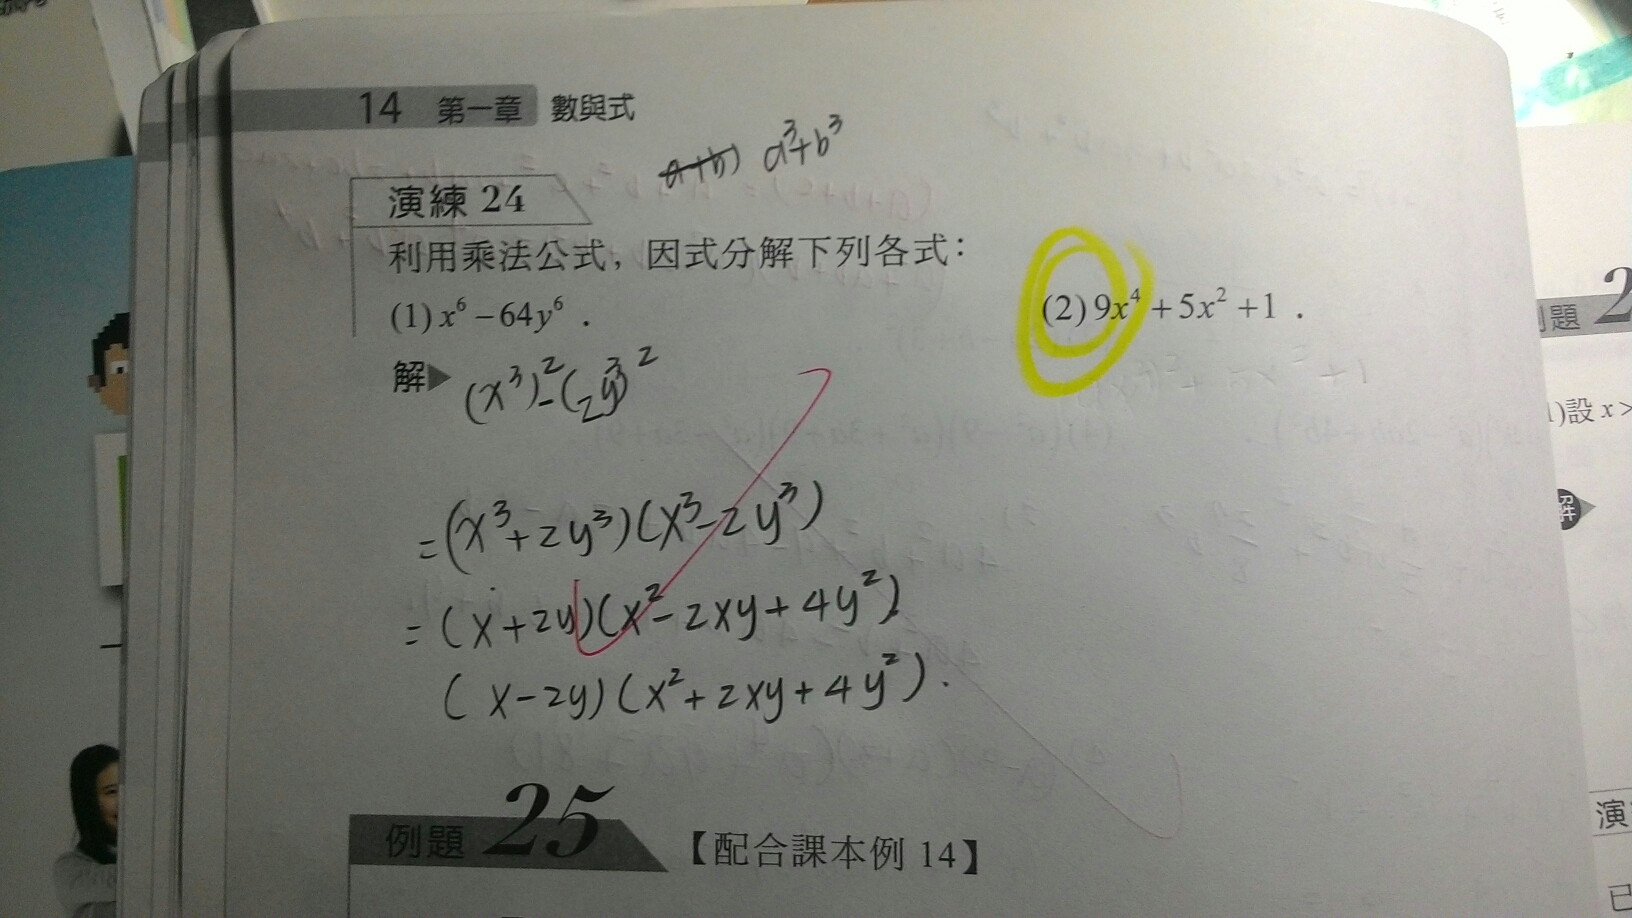 14 第一章 數與式
a+b) a³+b³
演練 24
利用乘法公式，因式分解下列各式：
(1) x⁶ − 64y⁶ .
(2) 9x⁴ + 5x² + 1 .
解▶ (x³)² − (2y³)²
= (x³ + 2y³)(x³ − 2y³)
= (x + 2y)(x² − 2xy + 4y²)
(x − 2y)(x² + 2xy + 4y²) .
例題 25 【配合課本例 14】
例題 2
1)設 x >
解
演
已